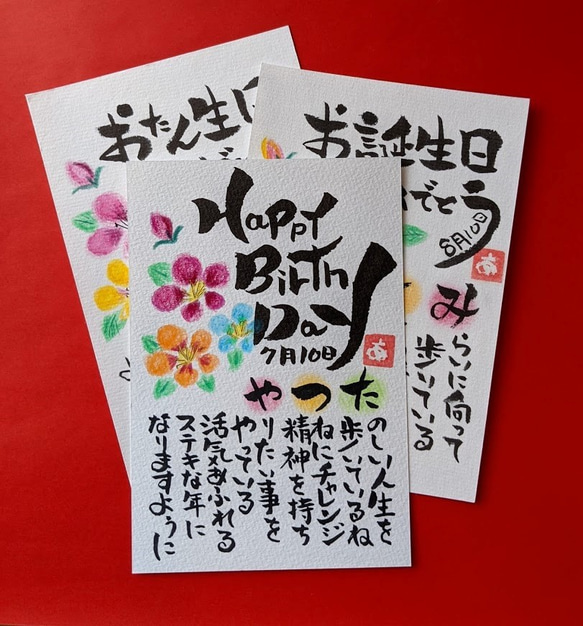 おたん生日
お誕生日
でとう
8月10日
あ
み
らいに向って
歩いている
Happy
Birth
Day
7月10日
あ
た
のしい人生を
歩いているね
つ
ねにチャレンジ
精神を持ち
や
りたい事を
やっている
活気あふれる
ステキな年に
なりますように